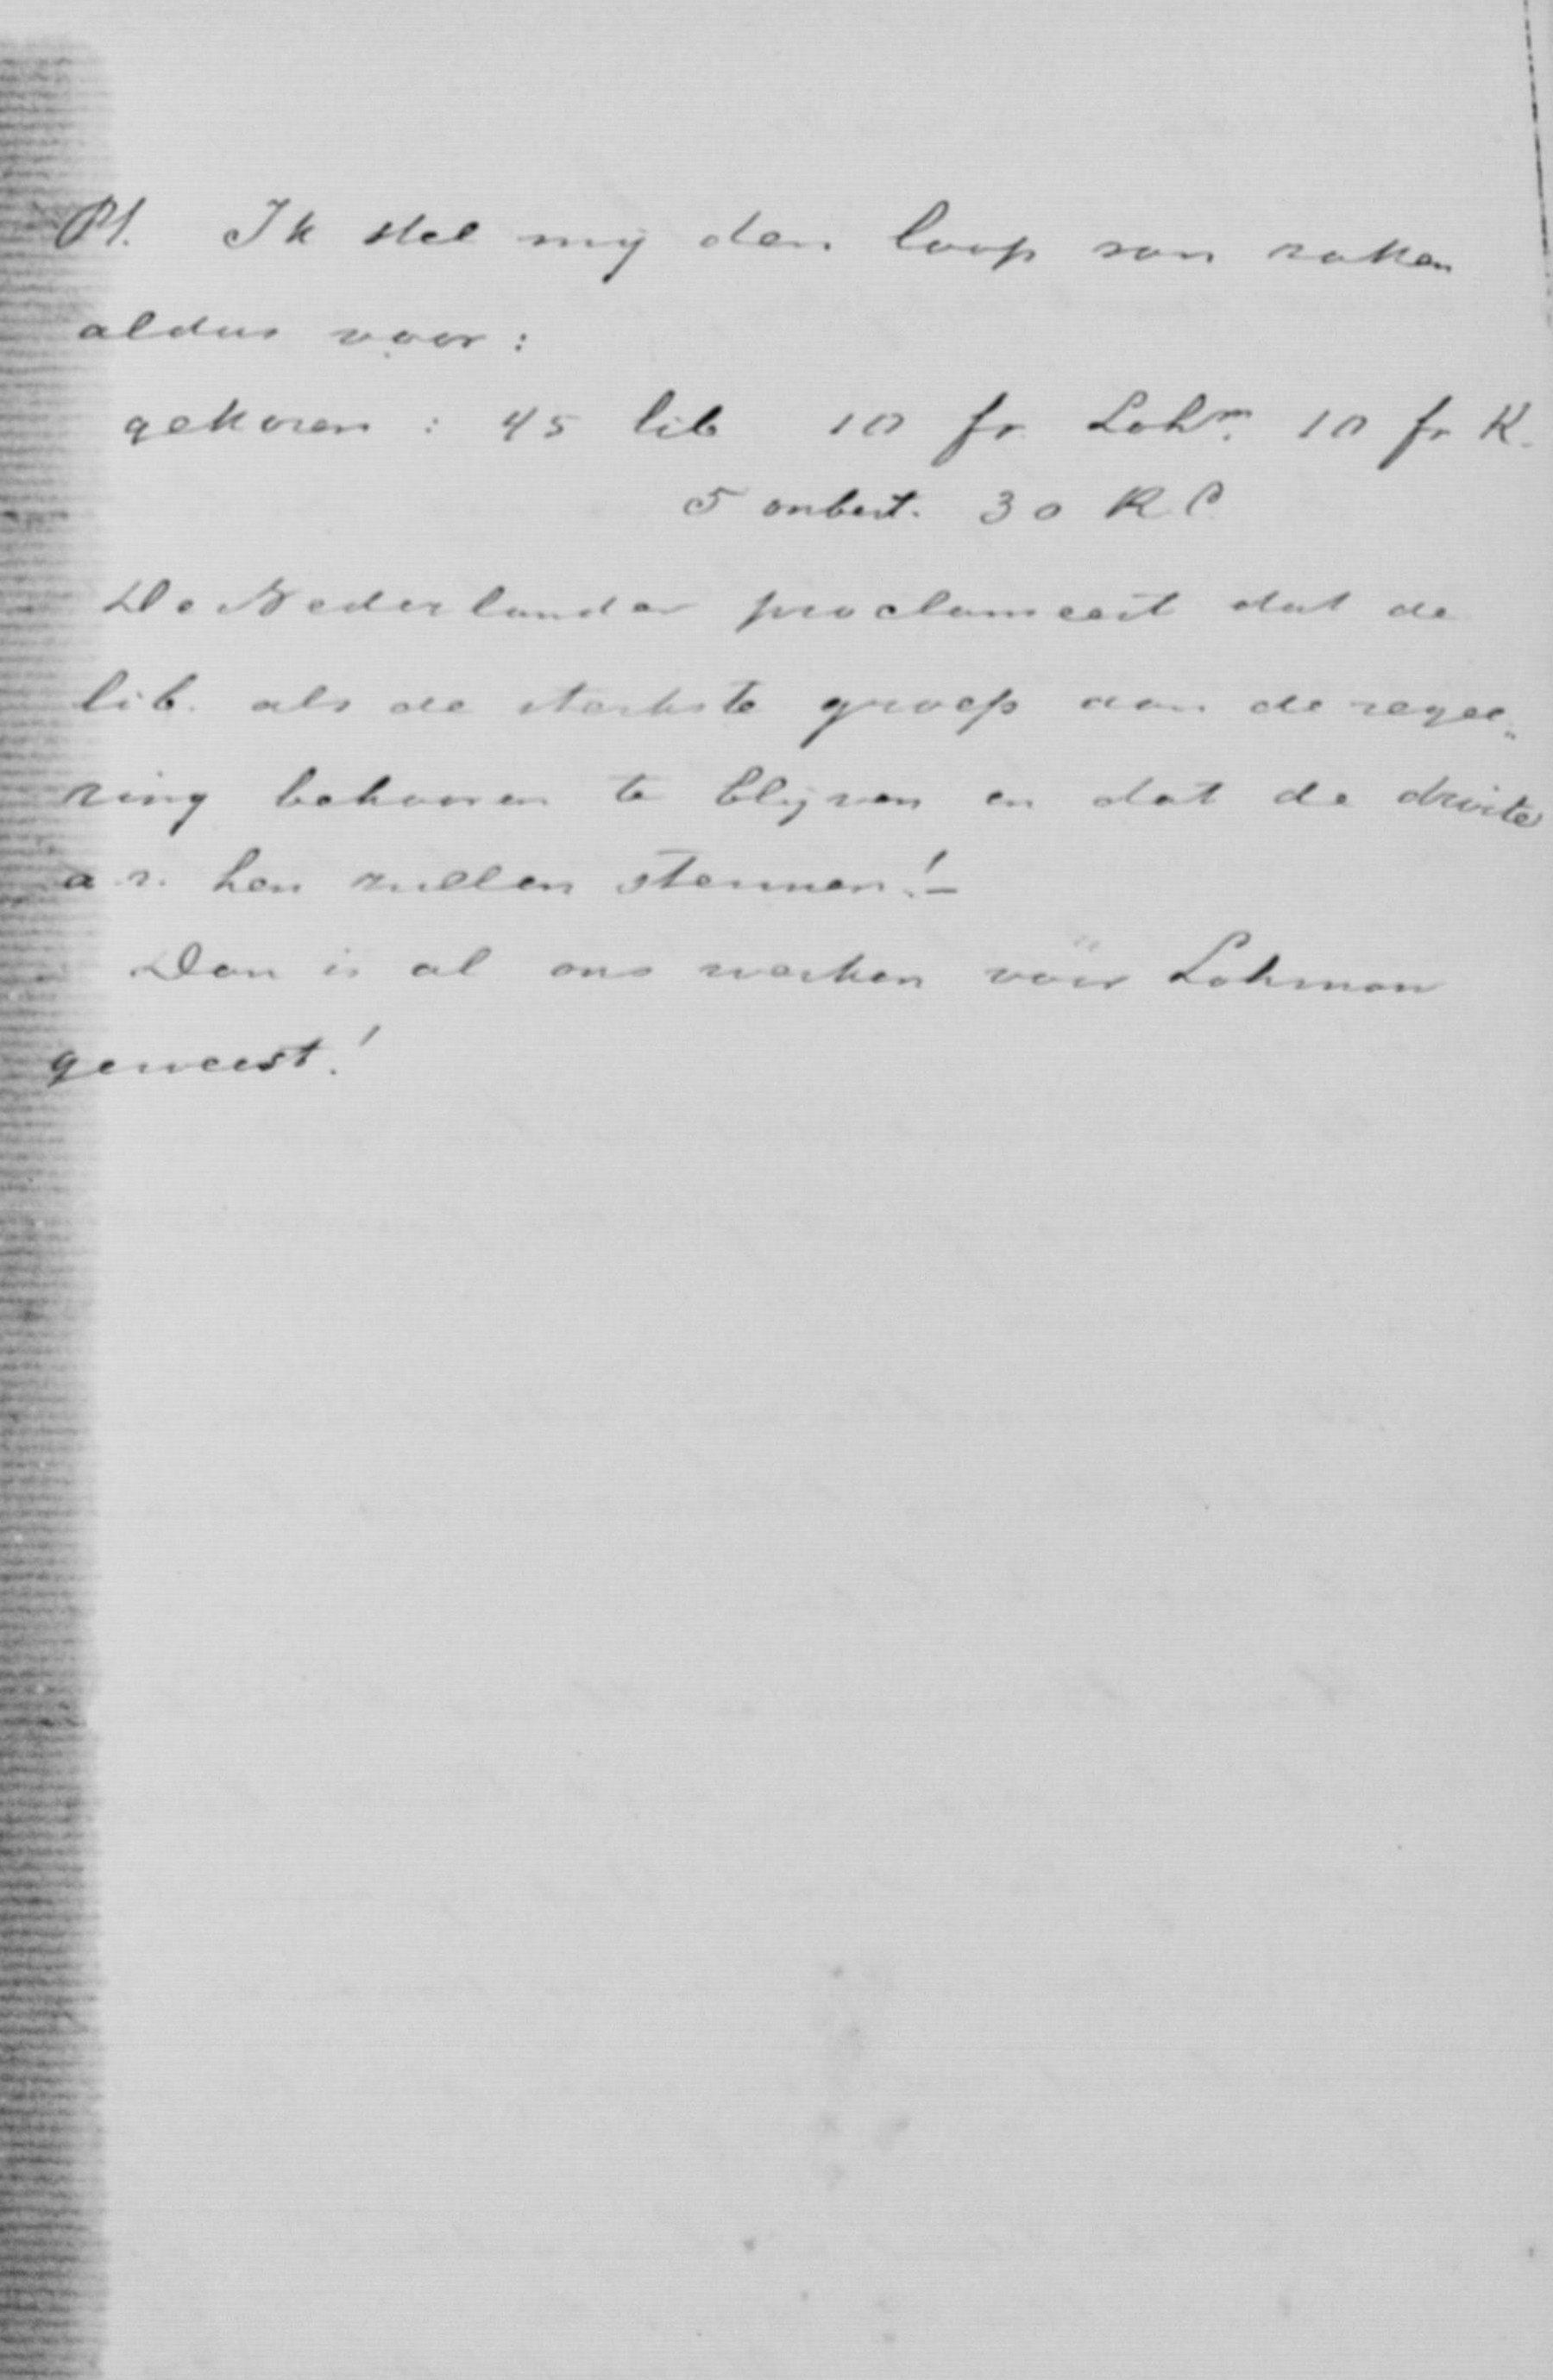 PS. Ik stel mij den loop van zaken
aldus voor:
gekozen: 45 lib 10 fr. Lohm. 10 fr K.
5 onbest. 30 R.C.
De Nederlander proclameert dat de
lib. als de sterkste groep aan de regee„
ring behooren te blijven en dat de droite
a.r. hen zullen steunen!–
Dan is al ons werken vóór Lohman
geweest!